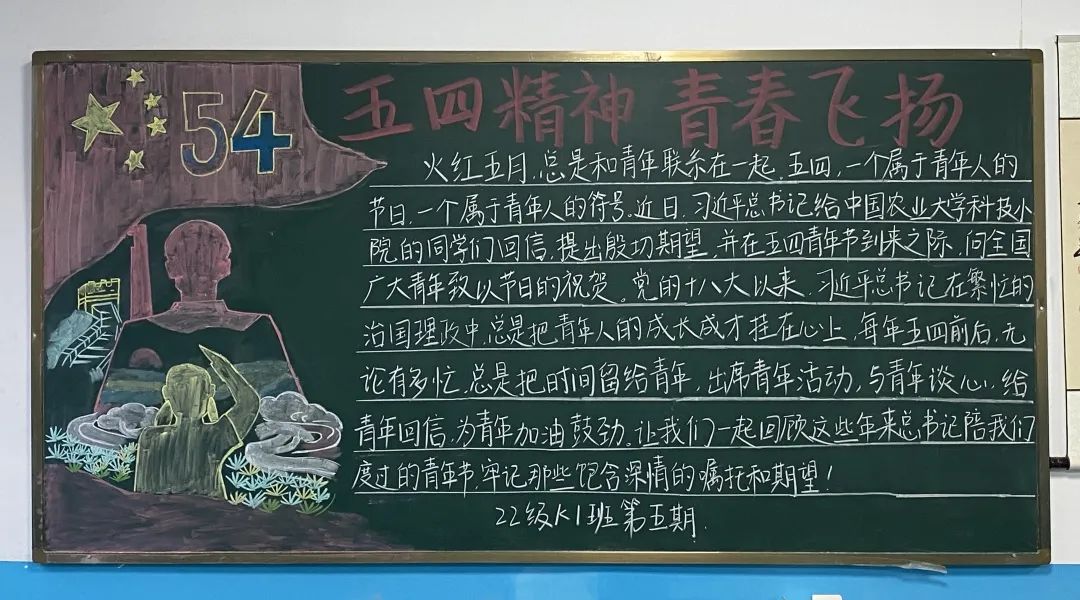 54
五四精神 青春飞扬
火红五月,总是和青年联系在一起,五四,一个属于青年人的
节日,一个属于青年人的符号。近日,习近平总书记给中国农业大学科技小
院的同学们回信,提出殷切期望,并在五四青年节到来之际,向全国
广大青年致以节日的祝贺。党的十八大以来,习近平总书记在繁忙的
治国理政中,总是把青年人的成长成才挂在心上,每年五四前后,无
论有多忙,总是把时间留给青年,出席青年活动,与青年谈心,给
青年回信,为青年加油鼓劲。让我们一起回顾这些年来总书记陪我们
度过的青年节,牢记那些饱含深情的嘱托和期望!
22级K1班第五期.